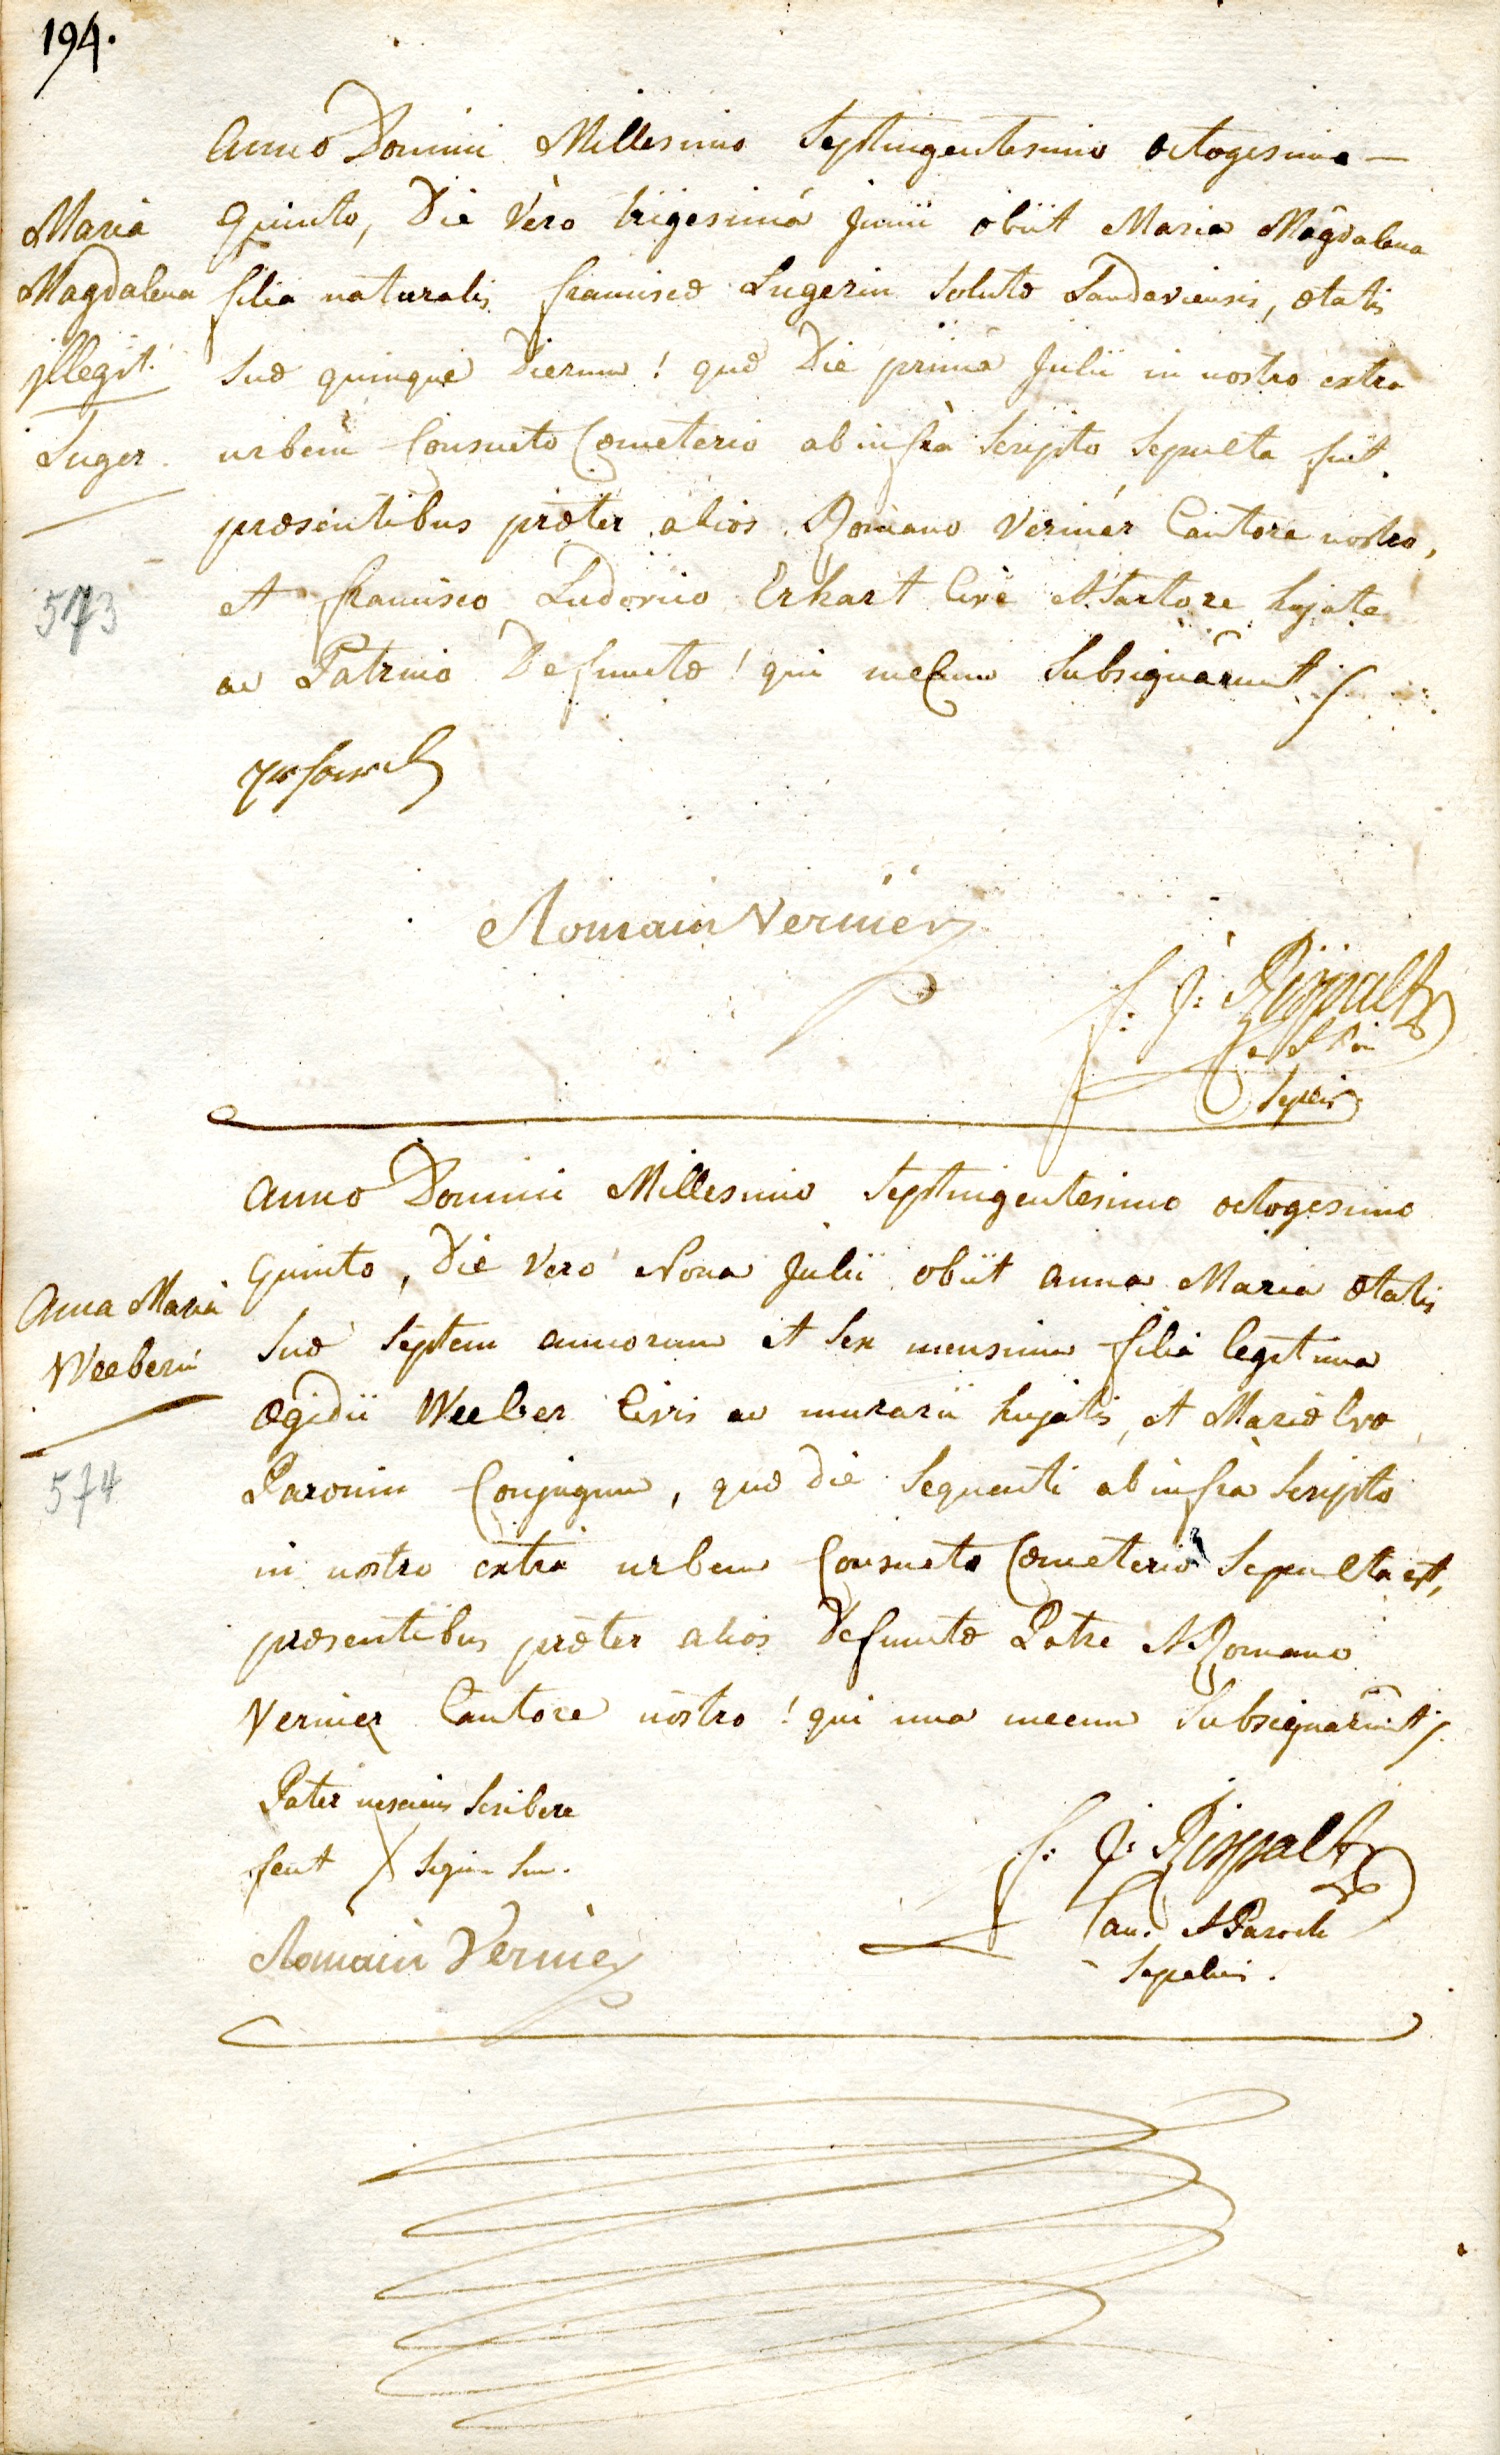 194.
Anno Domini Millesimo Septingentesimo octogesimo —
Maria
Magdalena
illegit.
Luger
573
quinto, Die vero trigesimâ Junii obiit Maria Magdalena
filia naturalis franciscæ Lugerin solutæ Landaviensis, ætatis
suæ quinque Dierum ! quæ Die primâ Julii in nostro extra
urbem Consueto Cœmeterio ab infrà scripto sepulta fuit.
præsentibus præter alios Romano Vernier Cantore nostro,
et francisco Ludovico Erhart Cive et sartore hujate
ac Patrino Defunctæ ! qui mecum subsignârunt
Romain Vernier
F: J: Rippalt
Anno Domini Millesimo Septingentesimo octogesimo
Anna Maria
Weeberin
574
quinto, Die vero Nona Julii obiit anna Maria ætatis
suæ septem annorum et sex mensium filia legitima
Ægidii Weeber Civis ac murarii hujatis, et Mariæ Evæ
Paronin Conjugum, quæ die sequenti ab infrà scripto
in nostro extrà urbem Consueto Cœmeterio Sepulta est,
præsentibus præter alios Defunctæ Patre et Romano
Vernier Cantore nostro ! qui una mecum subsignârunt
Pater nesciens scribere
fecit X signum suum.
Romain Vernier
F: J: Rippalt
Can. et Paroch
sepelivi.